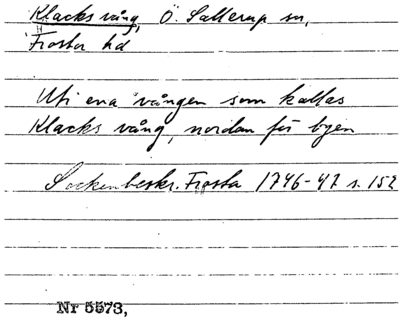 Klacks vång, Ö. Sallerup sn,
Frosta hd
Uti ena vången som kallas
Klacks vång, nordan för byen
Sockenbeskr. Frosta 1746-47 s. 152
Nr 5573,